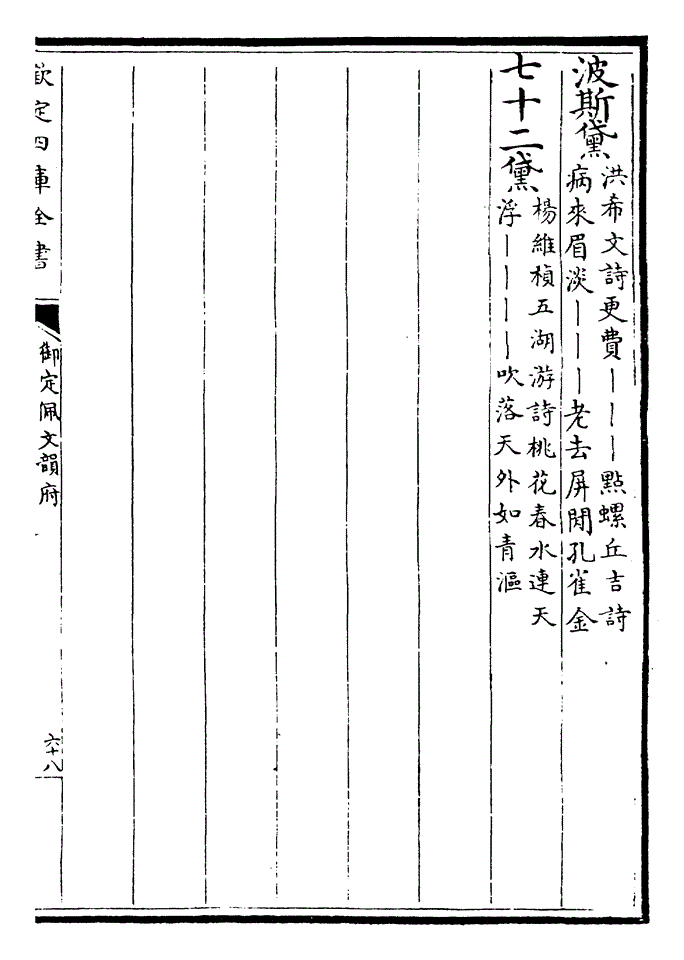 波斯黛
洪希文詩更費｜｜｜點螺丘吉詩
病來眉淡｜｜｜老去屏閒孔雀金
七十二黛
楊維楨五湖游詩桃花春水連天
浮｜｜｜｜吹落天外如青漚
欽定四庫全書
御定佩文韻府
六十八